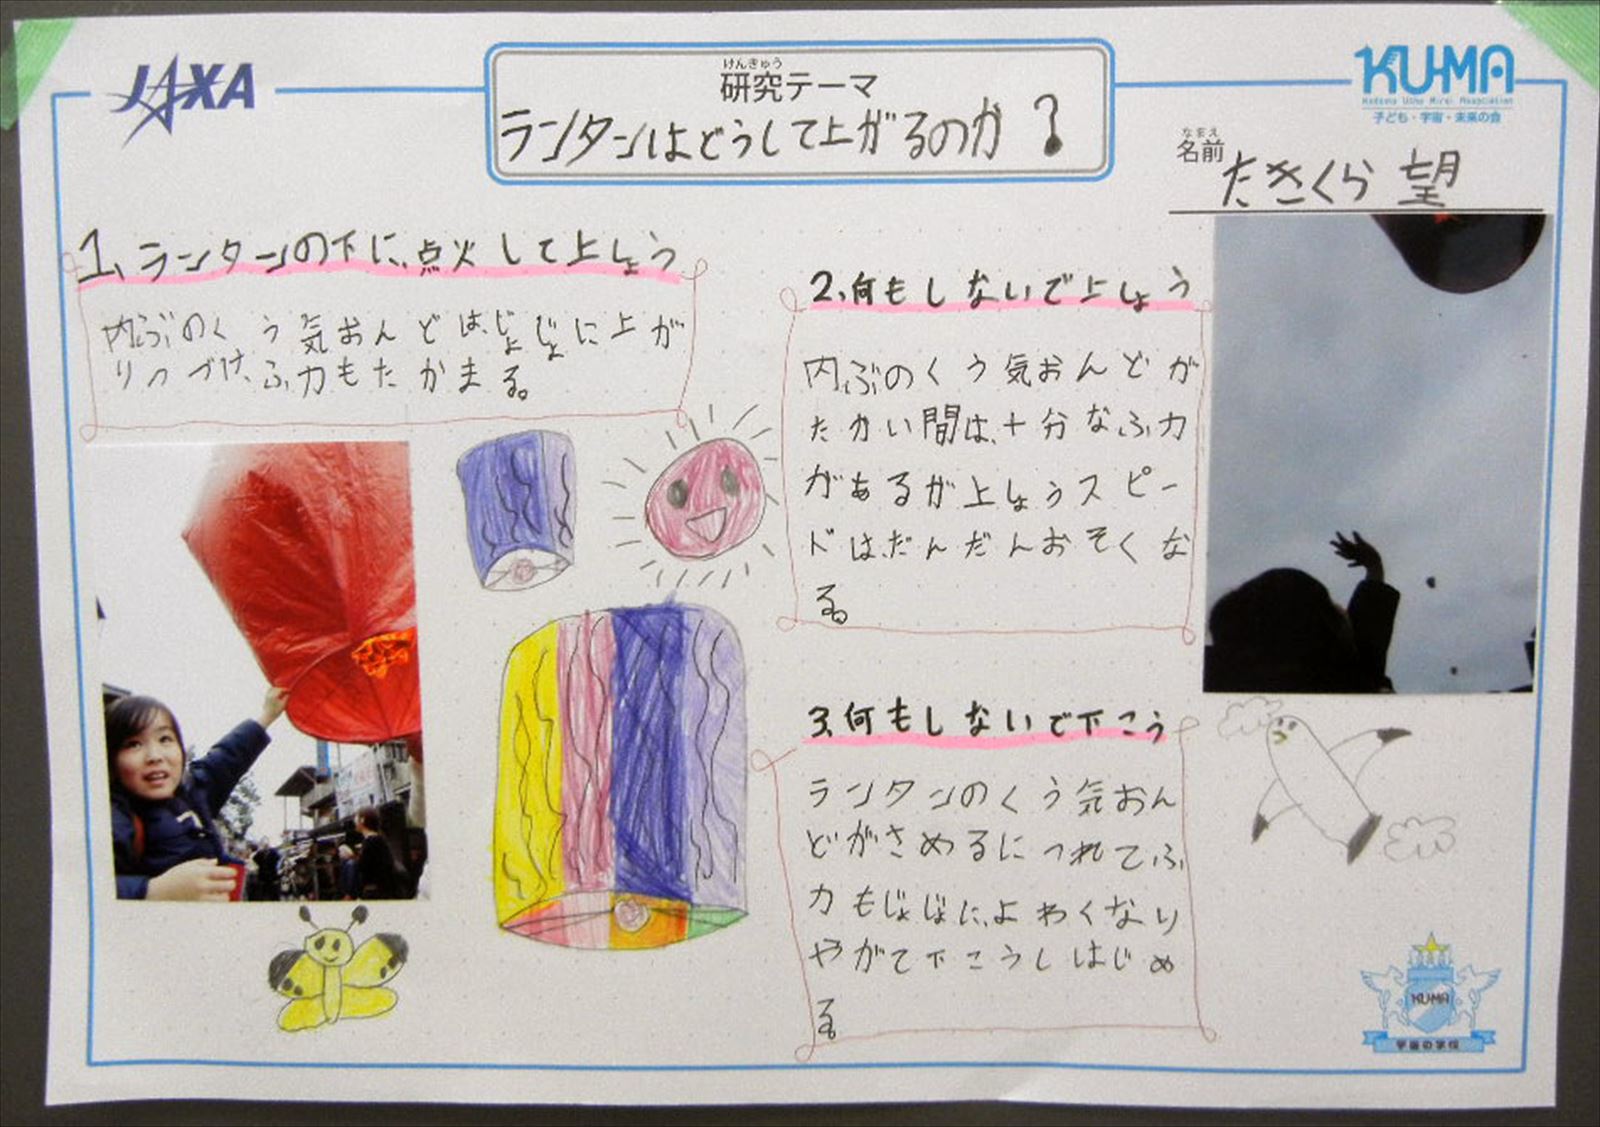 JAXA
けんきゅう
研究テーマ
ランタンはどうして上がるのか?
KU-MA
Kodomo Uchu Mirai Association
子ども・宇宙・未来の会
なまえ
名前
たきくら 望
1、ランタンの下に、点火して上しょう
内ぶのくう気おんどは、じょじょに上が
りつづけ、ふ力もたかまる。
2、何もしないで上しょう
内ぶのくう気おんどが
たかい間は、十分なふ力
があるが上しょうスピー
ドは、だんだんおそくな
る。
3、何もしないで下こう
ランタンのくう気おん
どがさめるにつれてふ
力もじょじょに、よわくなり
やがて下こうしはじめ
る。
KUMA
宇宙の学校